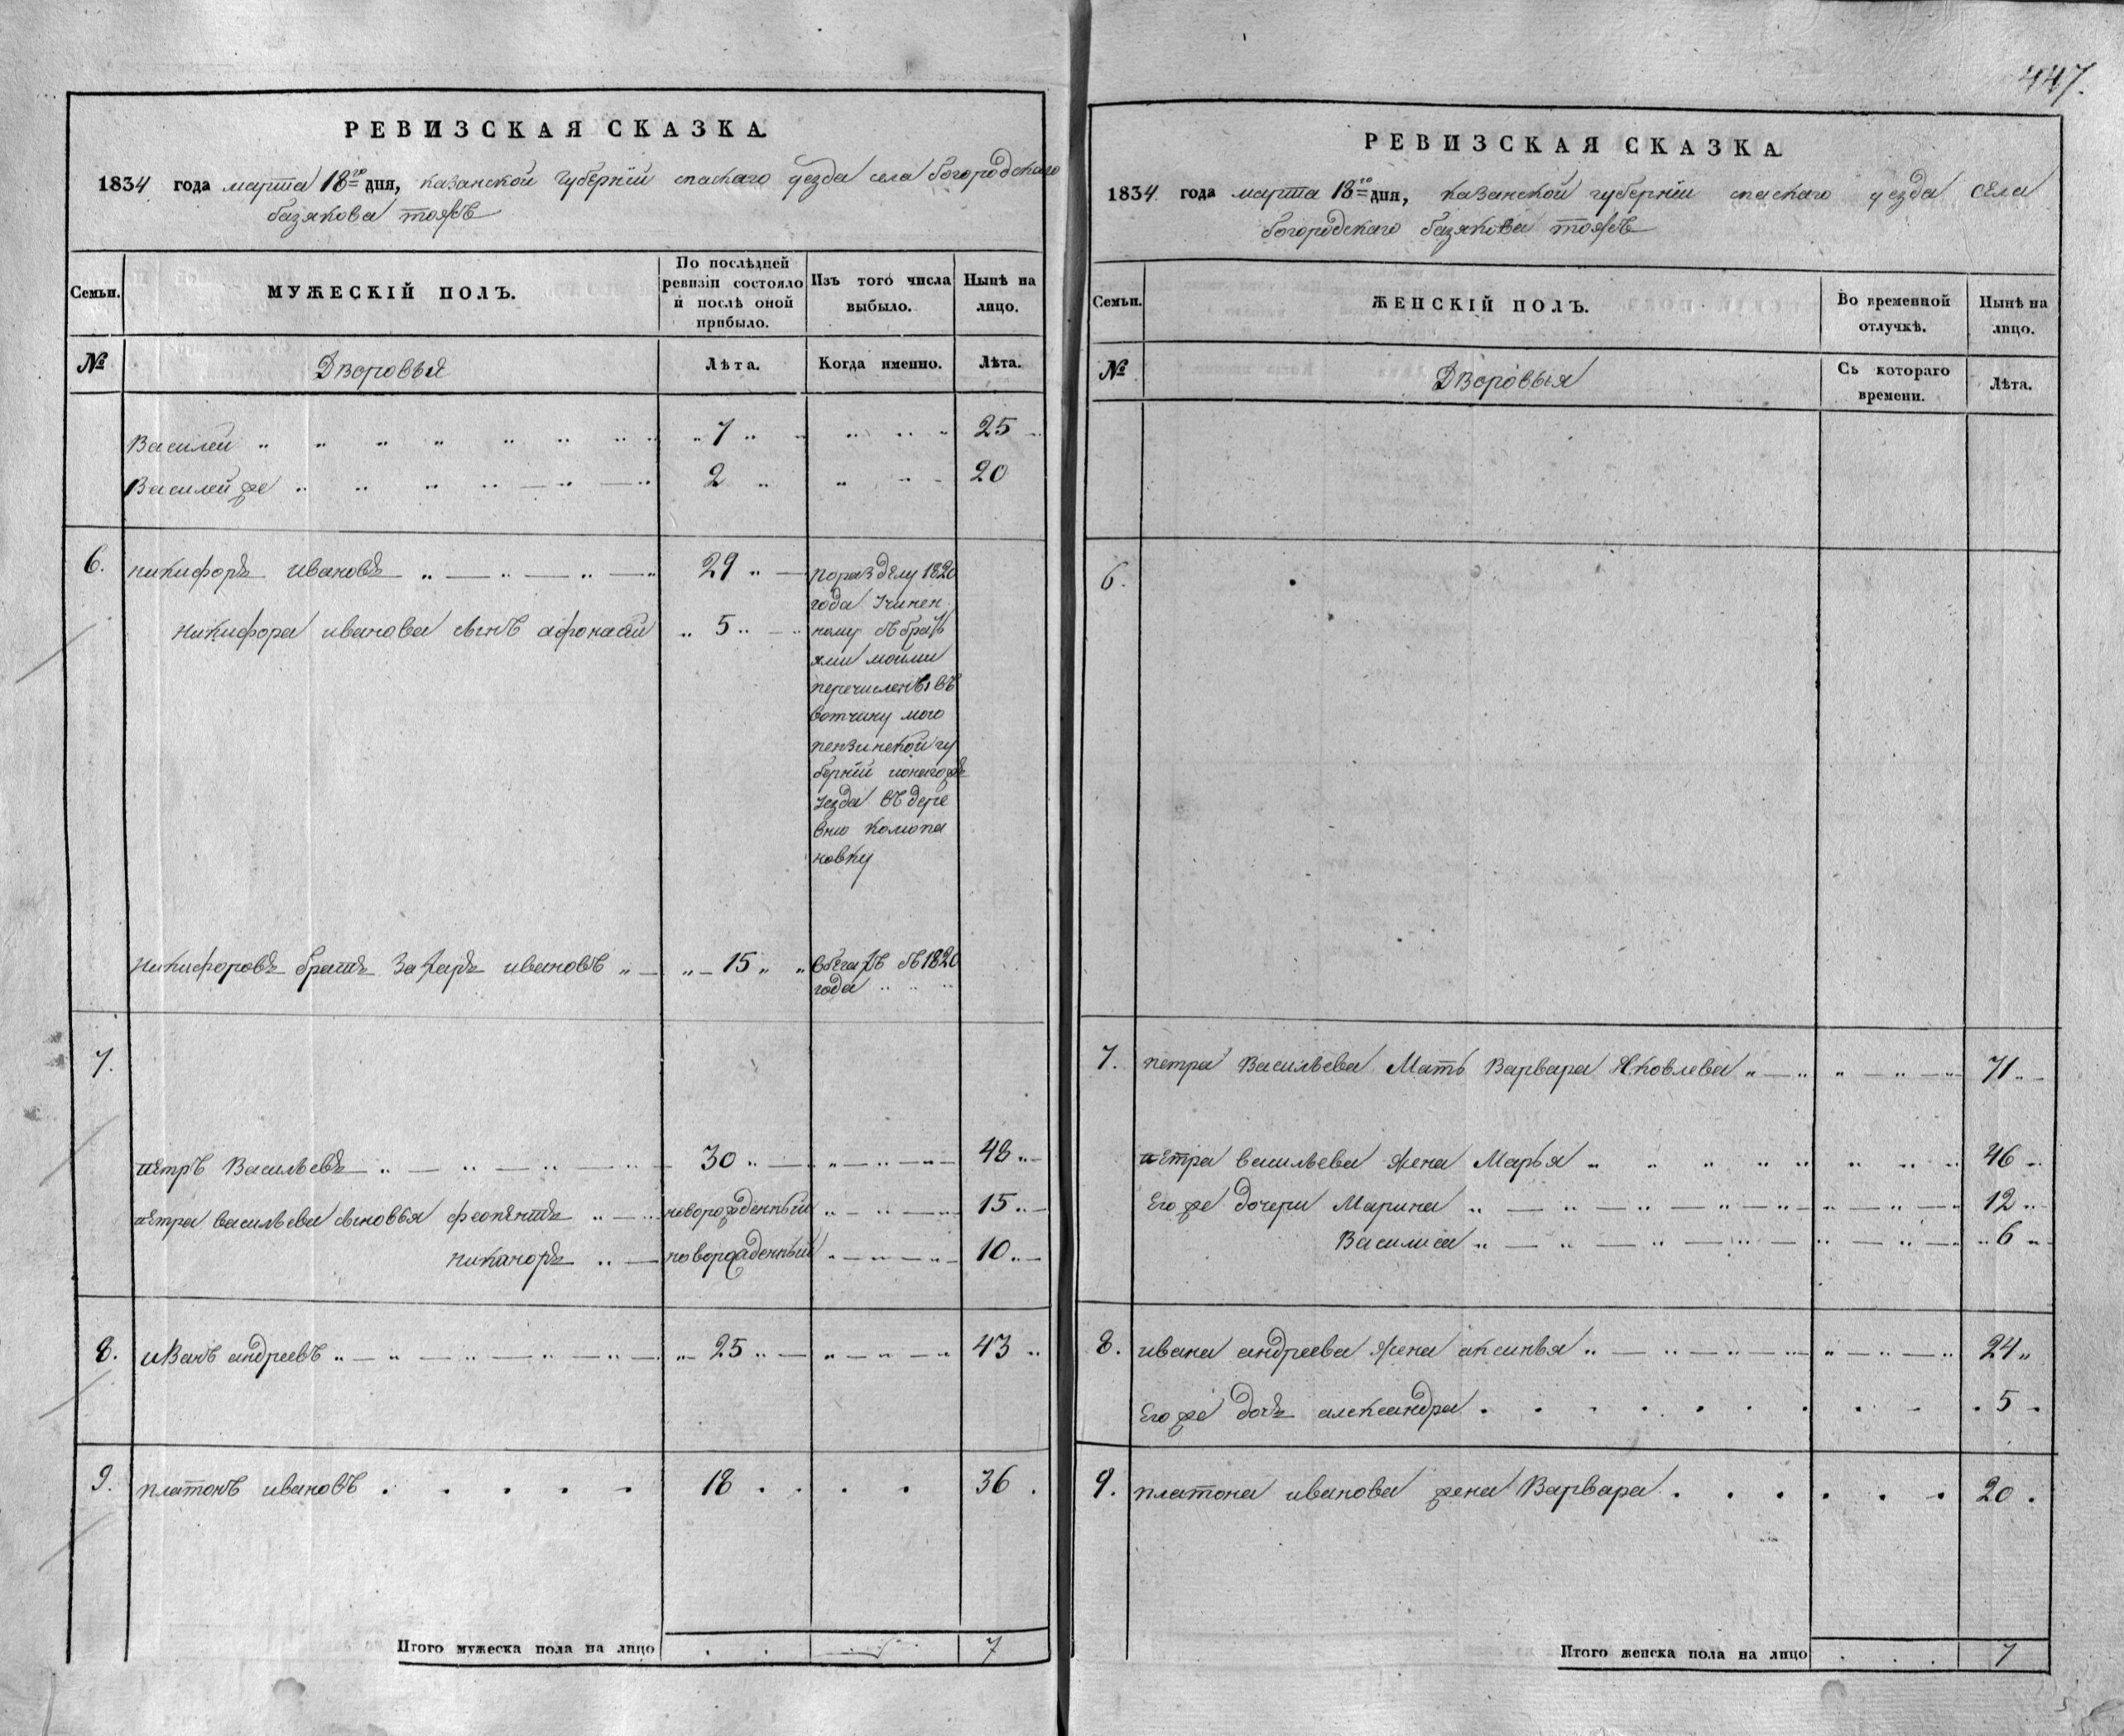 447.
РЕВИЗСКАЯ СКАЗКА.
1834 года марта 18го дня, казанской губернiи спаскаго уезда села богородскаго
базякова тожъ
Семьи.
МУЖЕСКІЙ ПОЛЪ.
По послѣдней ревизіи состояло и послѣ оной прибыло.
Изъ того числа выбыло.
Нынѣ на лицо.
№
Дворовыя
Лѣта.
Когда именно.
Лѣта.
Василей 7 25
Василей же 2 20
6. никифоръ ивановъ 29
никифора иванова сынъ афонасий 5
поразделу 1820
года учинен
ному съ брать
ями моими
перечислены въ
вотчину мого
пензинской гу
бернiи
уезда въ дере
вню
новку
никифоровъ братъ захаръ ивановъ 15
вбегахъ съ 1820
года
7.
петръ Васильевъ 30 48
петра васильева сыновья феопентъ новорожденный 15
никаноръ новорожденный 10
8. иванъ андреевъ 25 43
9. платонъ ивановъ 18 36
Итого мужеска пола на лицо 7
РЕВИЗСКАЯ СКАЗКА.
1834 года марта 18го дня, казанской губернiи спаскаго уезда села
богородскаго базякова тожъ
Семьи.
ЖЕНСКІЙ ПОЛЪ.
Во временной отлучкѣ.
Нынѣ на лицо.
№
Дворовыя
Съ котораго времени.
Лѣта.
6.
7. петра Васильева Мать Варвара Яковлева 71
петра васильева жена Марья 46
Его же дочери Марина 12
Василиса 6
8. ивана андреева жена аксинья 24
Его же дочь александра 5
9. платона иванова жена Варвара 20
Итого женска пола на лицо 7